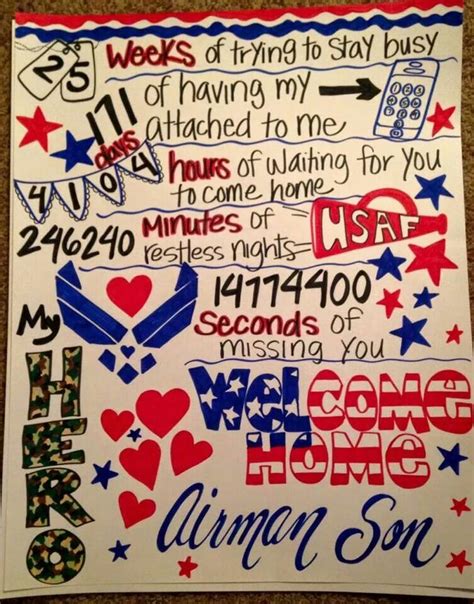 25 Weeks of trying to stay busy
171 days of having my
attached to me
4104 hours of waiting for you
to come home
246240 Minutes of
restless nights
USAF
14774400
Seconds of
missing you
My
HERO
Welcome
Home
Airman Son